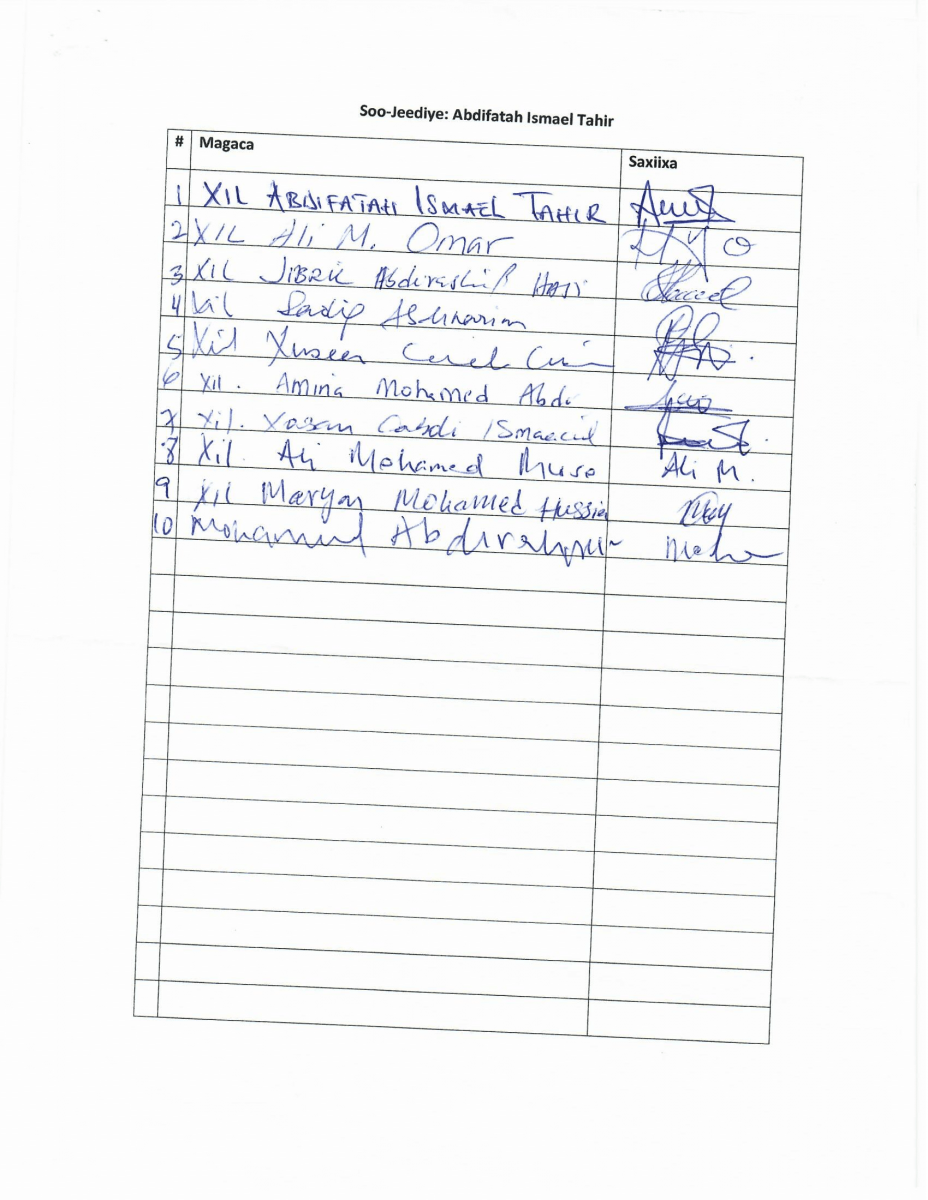 Soo-Jeediye: Abdifatah Ismael Tahir
# Magaca Saxiixa
1 XIL ABDIFATAH ISMAEL TAHIR
2 XIL Ali M. Omar
3 XIL JIBRIL Abdirashid HAJI
4 Xil Sadiq
5 Xil Xuseen
6 Xil. Amina Mohamed Abdi
7 Xil. Xasan Cabdi ISmaaciil
8 Xil. Ali Mohamed Muse Ali M.
9 Xil Maryan Mohamed Hussie
10 Mohamud